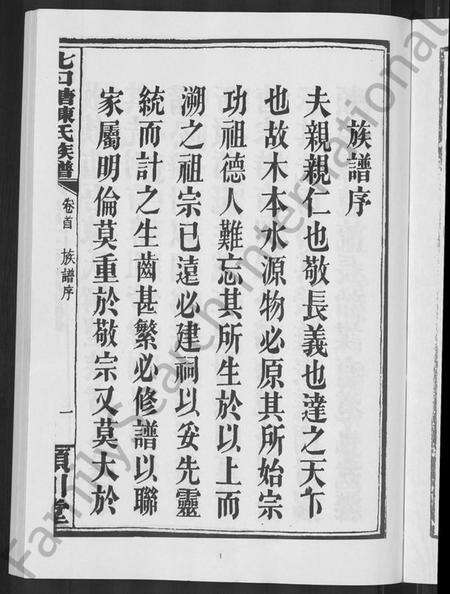 族譜序
夫親親仁也敬長義也達之天下
也故木本水源物必原其所始宗
功祖德人難忘其所生於以上而
溯之祖宗已遠必建祠以妥先靈
統而計之生齒甚繁必修譜以聯
家屬明倫莫重於敬宗又莫大於
七口塘陳氏族譜
卷首 族譜序
一
潁川堂
1
FamilySearch International